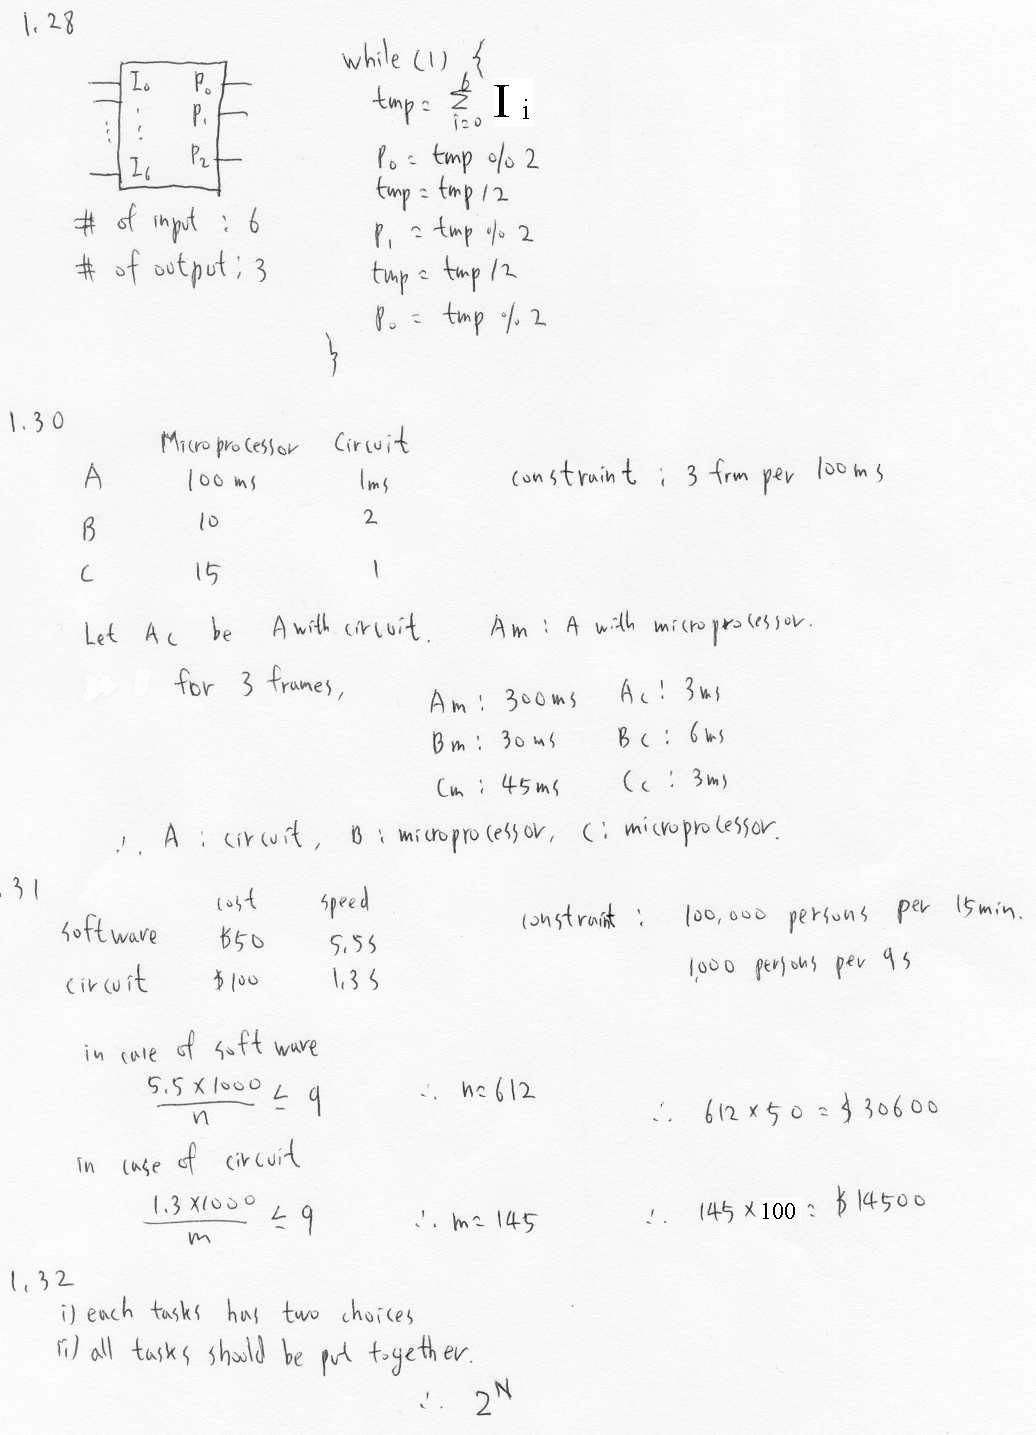 1.28
I0 P0
P1
I6 P2
# of input : 6
# of output : 3
while (1) {
tmp = 6 Σ i=0 I i
P0 = tmp % 2
tmp = tmp / 2
P1 = tmp % 2
tmp = tmp / 2
P0 = tmp % 2
}
1.30
Microprocessor Circuit
A 100 ms 1ms
B 10 2
C 15 1
constraint : 3 frm per 100ms
Let Ac be A with circuit. Am : A with microprocessor.
for 3 frames,
Am : 300ms Ac : 3ms
Bm : 30ms Bc : 6ms
Cm : 45ms Cc : 3ms
∴ A : circuit, B : microprocessor, C : microprocessor.
.31
cost speed
software $50 5.5s
circuit $100 1.3s
constraint : 100,000 persons per 15min.
1,000 persons per 9s
in case of software
5.5 × 1000 / n ≤ 9 ∴ n = 612 ∴ 612 × 50 = $30600
in case of circuit
1.3 × 1000 / m ≤ 9 ∴ m = 145 ∴ 145 × 100 = $14500
1.32
i) each tasks has two choices
ii) all tasks should be put together.
∴ 2^N